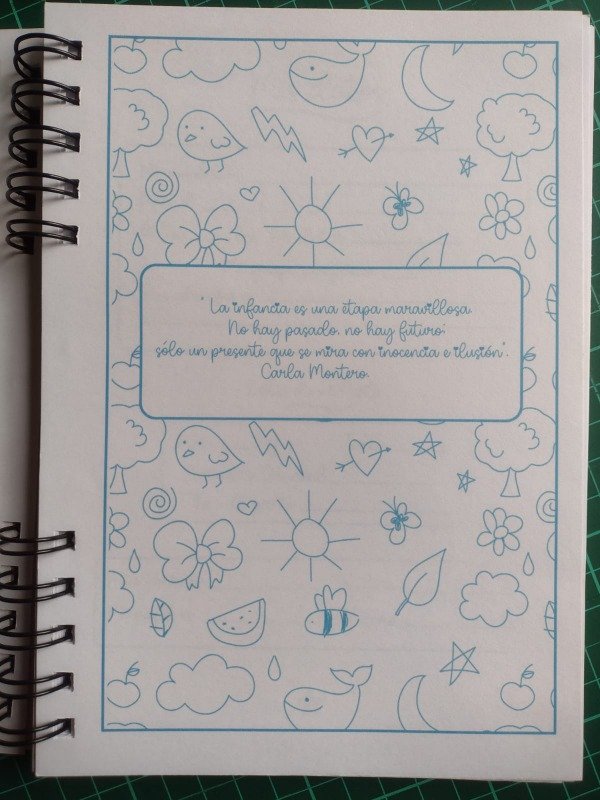 "La infancia es una etapa maravillosa.
No hay pasado, no hay futuro;
sólo un presente que se mira con inocencia e ilusión".
Carla Montero.